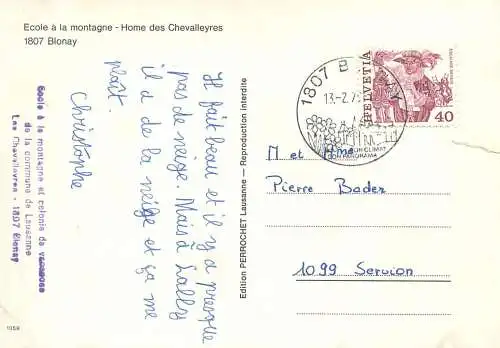 Ecole à la montagne - Home des Chevalleyres
1807 Blonay
Il fait beau et il y a presque
pas de neige. Mais à Lally
il a de la neige et ça me
plaît.
Christophe
Ecole à la montagne et colonie de vacances
de la commune de Lausanne
Les Chevalleyres - 1807 Blonay
Edition PERROCHET Lausanne — Reproduction interdite
1807 B
13.-2.7
SON PANORAMA
HELVETIA
40
M et Mme
Pierre Bader
1099 Servion
1059